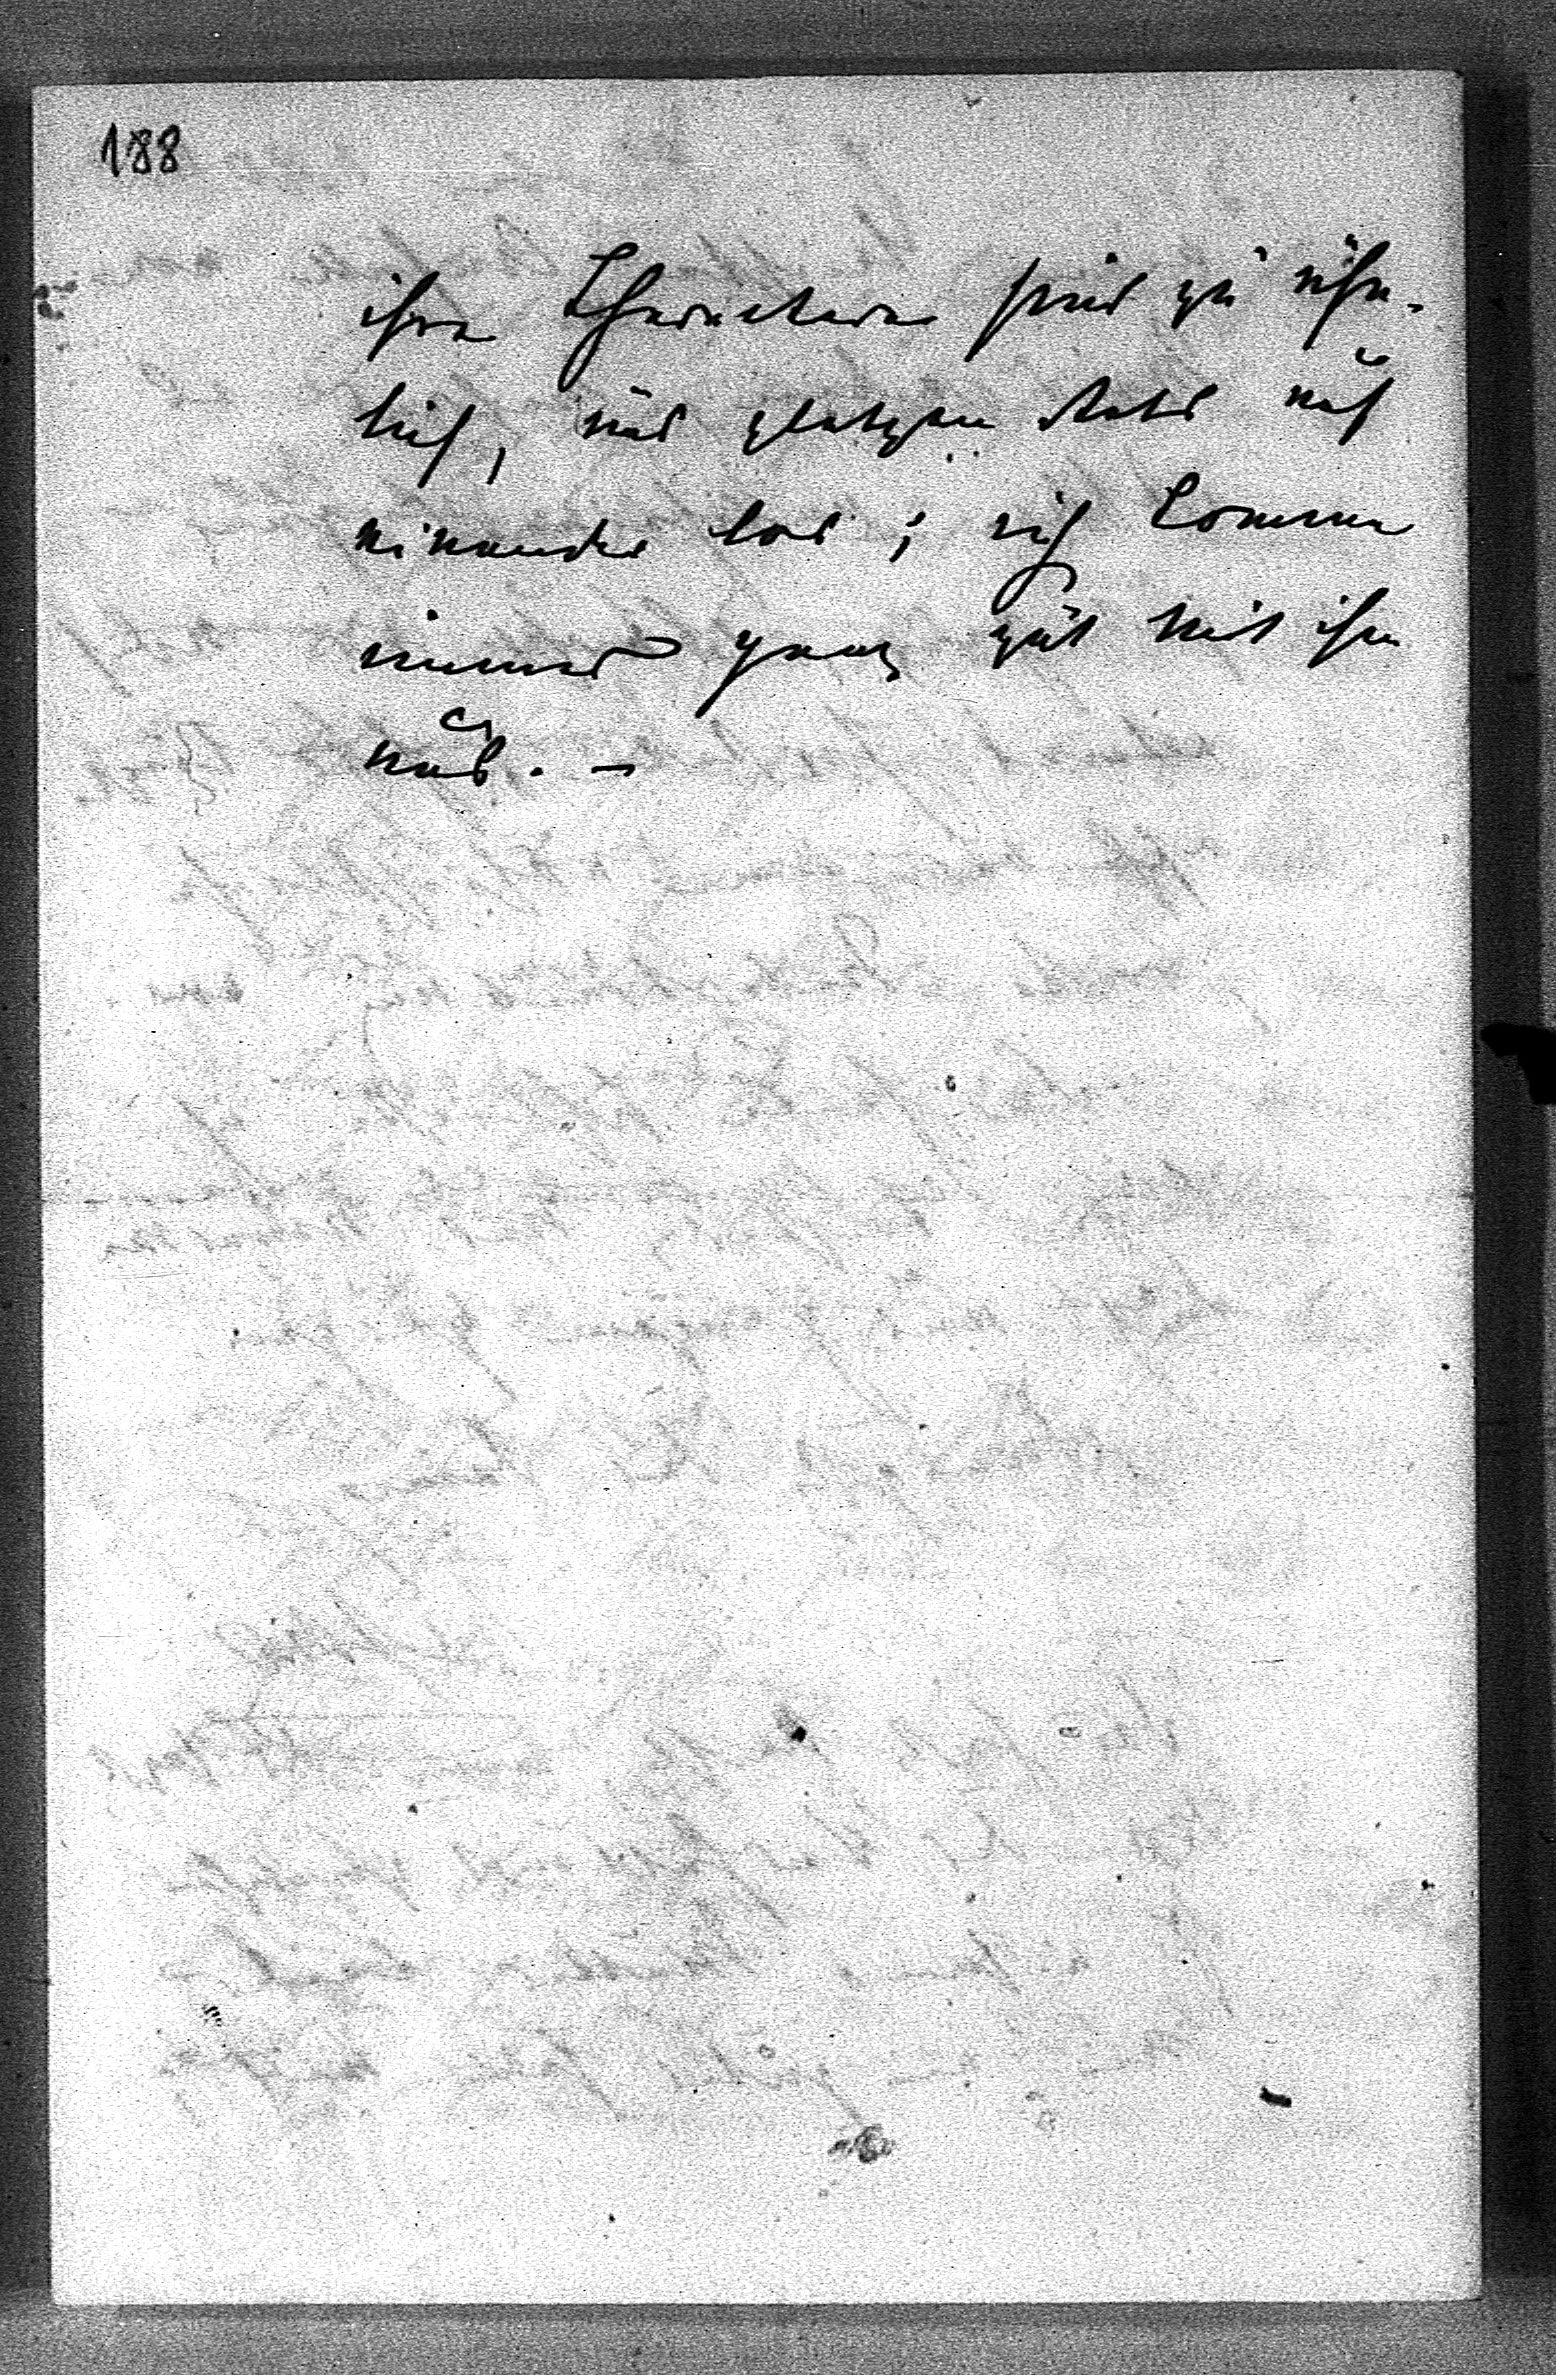 188
ihre Charactere sind zu ähn-
lich, und platzen stets auf
einander los; ich komme
immer ganz gut mit ihm
aus. –